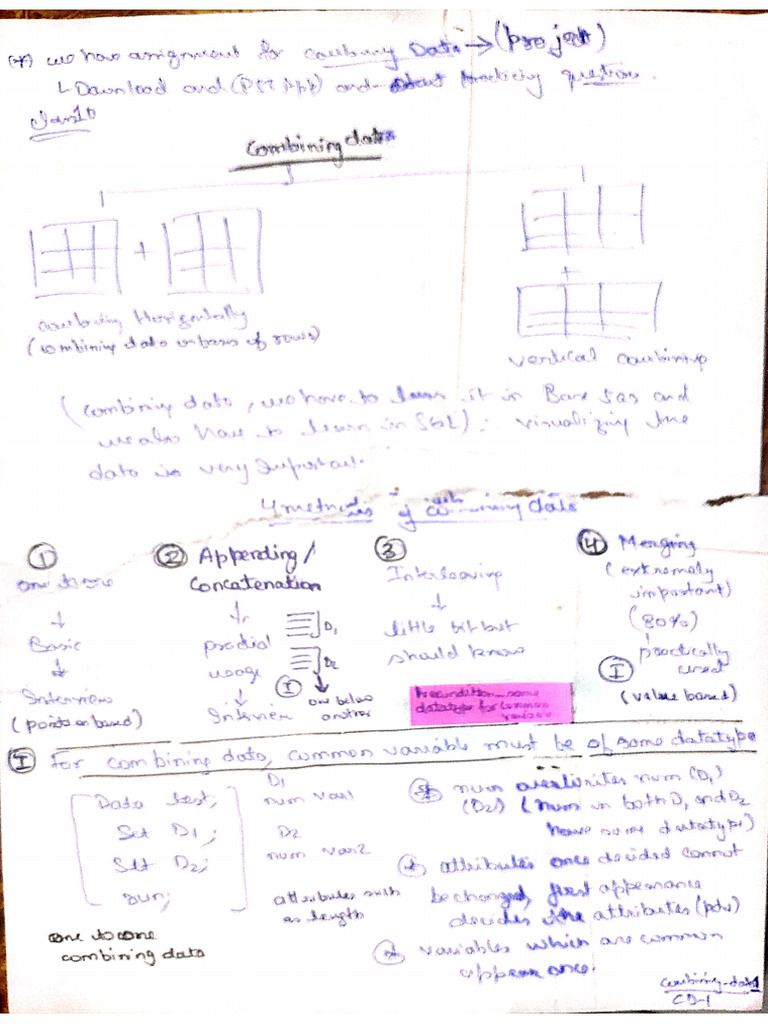 (*) we have assignment for combining Data → (project)
↳ Download and (PST App) and practicing question.
Jan 10
Combining data
+
+
combining Horizontally
(combining data on bases of rows)
vertical combining
(combining data, we have to learn it in Base sas and
we also have to learn in SQL) ∴ visualizing the
data is very Important.
4 methods of combining data
① one to one
↓
Basic
↓
Interview
(position based)
② Appending /
Concatenation
↓
usage
↓
Interview
D1
D2
① ↓
one below
another
③ Interleaving
↓
little bit but
should know
Precondition_same
datatype for common
variable
④ Merging
(extremely
important)
(80%)
practically
used
①
(value based)
① For combining data, common variable must be of same datatype
Data test;
Set D1;
Set D2;
run;
one to one
combining data
D1
num var1
D2
num var2
attributes such
as length
(*) num overwrites num (D1)
(D2) (num in both D1 and D2
have same datatype)
(*) attributes once decided cannot
be changed, first appearance
decides the attributes (pdv)
(*) variables which are common
appear once.
Combining-data
CD-1